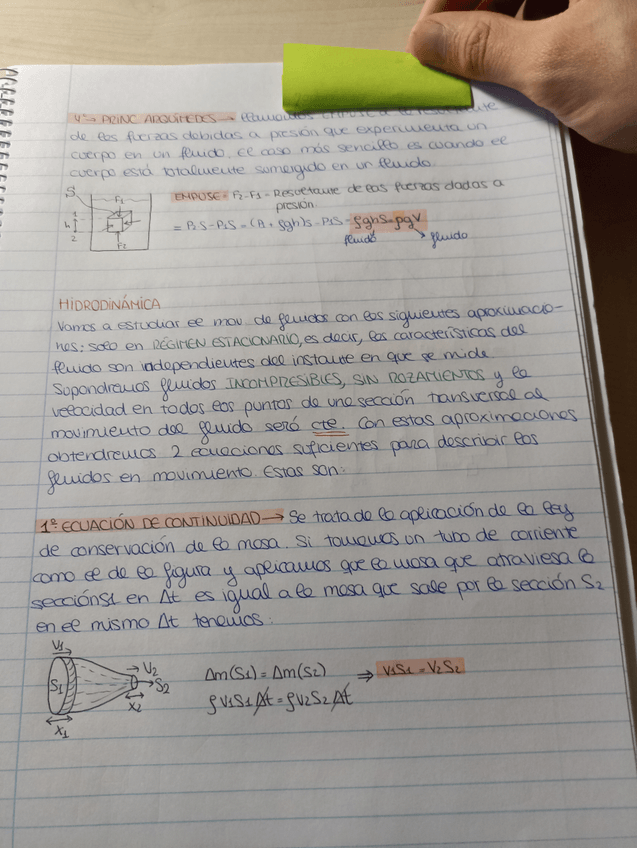 4º- PRINC ARQUÍMEDES → llamamos empuje a la resultante
de las fuerzas debidas a presión que experimenta un
cuerpo en un fluido. El caso más sencillo es cuando el
cuerpo está totalmente sumergido en un fluido.
S
F1
1
h
2
F2
EMPUJE = F2-F1 = Resultante de las fuerzas dadas a
presión
= P2S-P1S = (P1 + ρgh)S - P1S = ρghS = ρgV
fluido
fluido
HIDRODINÁMICA
Vamos a estudiar el mov. de fluidos con las siguientes aproximacio-
nes: solo en RÉGIMEN ESTACIONARIO, es decir, las características del
fluido son independientes del instante en que se mide.
Supondremos fluidos INCOMPRESIBLES, SIN ROZAMIENTOS y la
velocidad en todos los puntos de una sección transversal al
movimiento del fluido será cte. Con estas aproximaciones
obtendremos 2 ecuaciones suficientes para describir los
fluidos en movimiento. Estas son:
1º ECUACIÓN DE CONTINUIDAD → Se trata de la aplicación de la ley
de conservación de la masa. Si tomamos un tubo de corriente
como el de la figura y aplicamos que la masa que atraviesa la
sección S1 en Δt es igual a la masa que sale por la sección S2
en el mismo Δt tenemos:
V1
S1
X1
V2
S2
X2
Δm(S1) = Δm(S2) ⇒ V1S1 = V2S2
ρV1S1Δt = ρV2S2Δt